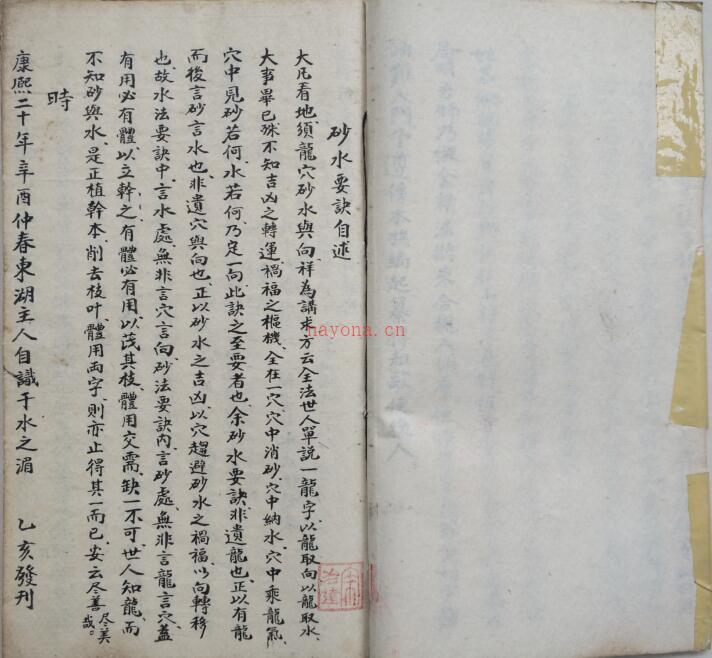 砂水要訣自述
大凡看地、須龍穴砂水與向祥為講求、方云全法、世人單説一龍字、以龍取向、以龍取水、
大事畢已、殊不知吉凶之轉運、禍福之樞機、全在一穴、穴中消砂、穴中納水、穴中乘龍氣、
穴中見砂若何、水若何、乃定一向、此訣之至要者也、余砂水要訣、非遺龍也、正以有龍
而後言砂言水也、非遺穴與向也、正以砂水之吉凶、以穴趨避、砂水之禍福、以向轉移
也、故水法要訣中、言水處、無非言穴言向、砂法要訣內、言砂處、無非言龍言穴、蓋
有用必有體、以立幹之、有體必有用、以茂其枝、體用交需、缺一不可、世人知龍、而
不知砂與水、是正植幹本、削去枝叶、體用両字、則亦止得其一而已、安云尽善尽美哉。
時
康熙二十年辛酉仲春東湖主人自識于水之湄 乙亥發刊
hayona.cn